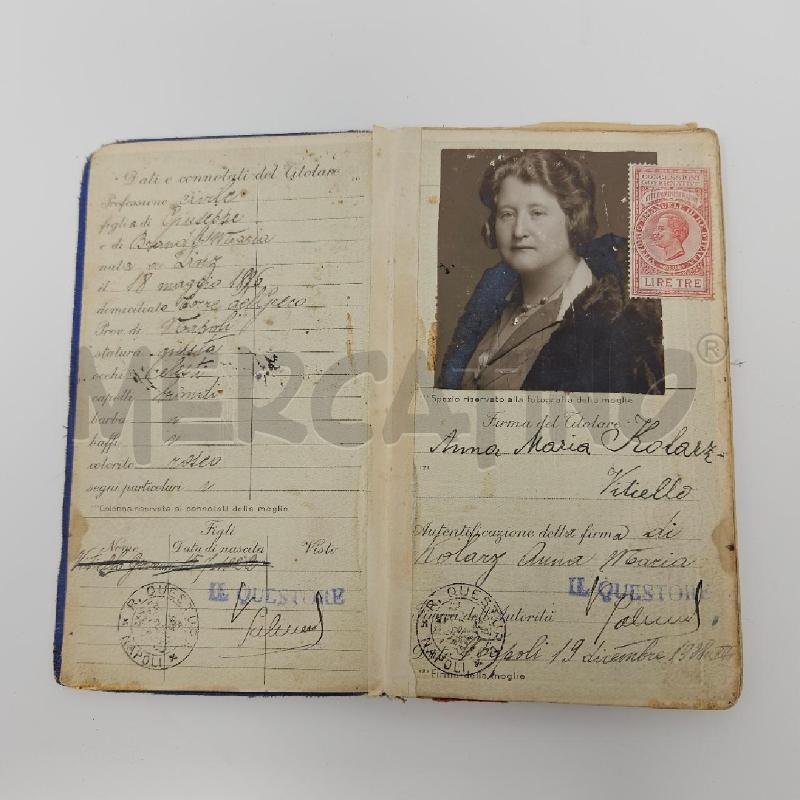 Dati e connotati del Titolare
Professione civile
figlia di Giuseppe
e di Maria
nata a Linz
il 18 maggio
domiciliato Torre del Greco
Prov. di Napoli
statura giusta
occhi celesti
capelli
barba
baffi
colorito roseo
segni particolari
Colonna riservata ai connotati della moglie
Figli
Nome Data di nascita Visto
IL QUESTORE
R. QUESTURA
NAPOLI
CONCESSIONI
GOVERNATIVE
LIRE TRE
Spazio riservato alla fotografia della moglie
Firma del Titolare
Anna Maria Kolarz-
Vitiello
Autentificazione della firma di
Kolarz Anna Maria
IL QUESTORE
Firma dell'Autorità
R. QUESTURA
NAPOLI
Napoli 19 dicembre
Firma della moglie
MERCATINO®